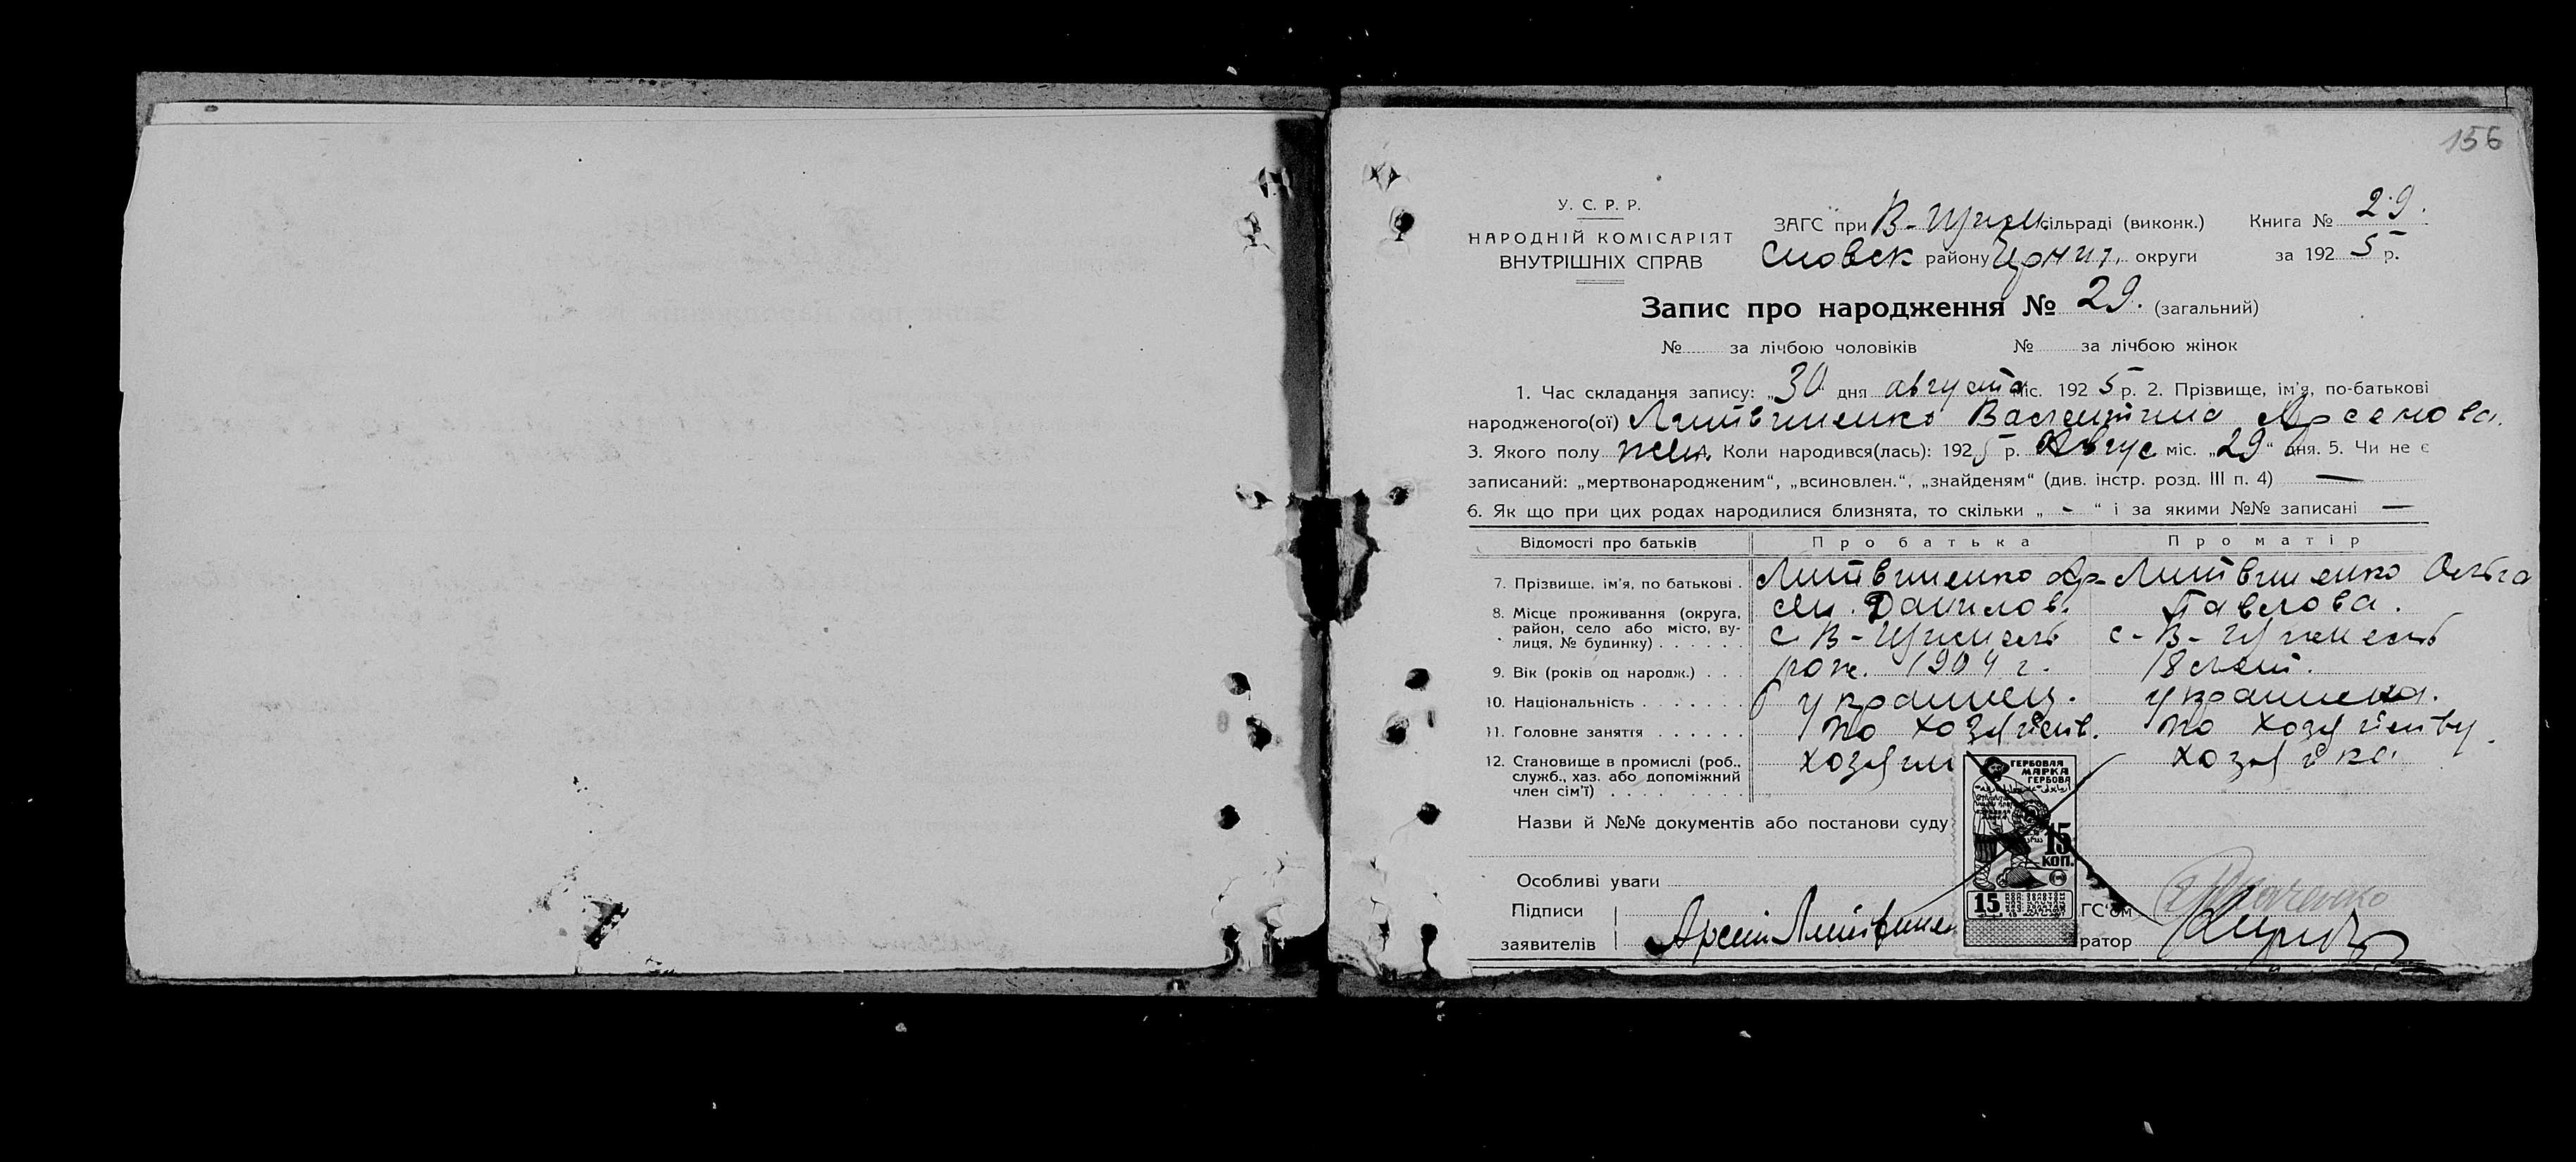 156
У. С. Р. Р.
НАРОДНІЙ КОМІСАРІЯТ
ВНУТРІШНІХ СПРАВ
ЗАГС при В- сільраді (виконк.)
району округи
Книга № 29.
за 1925 р.
Запис про народження № 29. (загальний)
№ за лічбою чоловіків № за лічбою жінок
1. Час складання запису: „30 дня августа міс. 1925 р. 2. Прізвище, ім'я, по-батькові
народженого(ої) Литвиненко Валентина Арсенова.
3. Якого полу жен. Коли народився(лась): 1925 р. Авгус міс. „29“ дня. 5. Чи не є
записаний: „мертвонародженим“, „всиновлен.“, „знайденям“ (див. інстр. розд. III п. 4) —
6. Як що при цих родах народилися близнята, то скільки „ - “ і за якими №№ записані —
Відомості про батьків Про батька Про матір
7. Прізвище, ім'я, по батькові . Литвиненко Ар- Литвиненко Ольга
сен. Данилов. Павлова.
8. Місце проживання (округа,
район, село або місто, ву-
лиця, № будинку) . . . . . . с В- с-В-
9. Вік (років од народж.) . . . рож. 1904 г. 18 лет.
10. Національність . . . . . . . украинец. украинка.
11. Головне заняття . . . . . . по хозяйств. по хозяйству.
12. Становище в промислі (роб.,
служб., хаз. або допоміжний
член сім'ї) . . . . . . . . . хозяин хозяйка
Назви й №№ документів або постанови суду
Особливі уваги
Підписи
заявителів Арсений Литвинен
ГС'ом
ратор
ГЕРБОВАЯ
МАРКА
ГЕРБОВА
15
КОП.
15